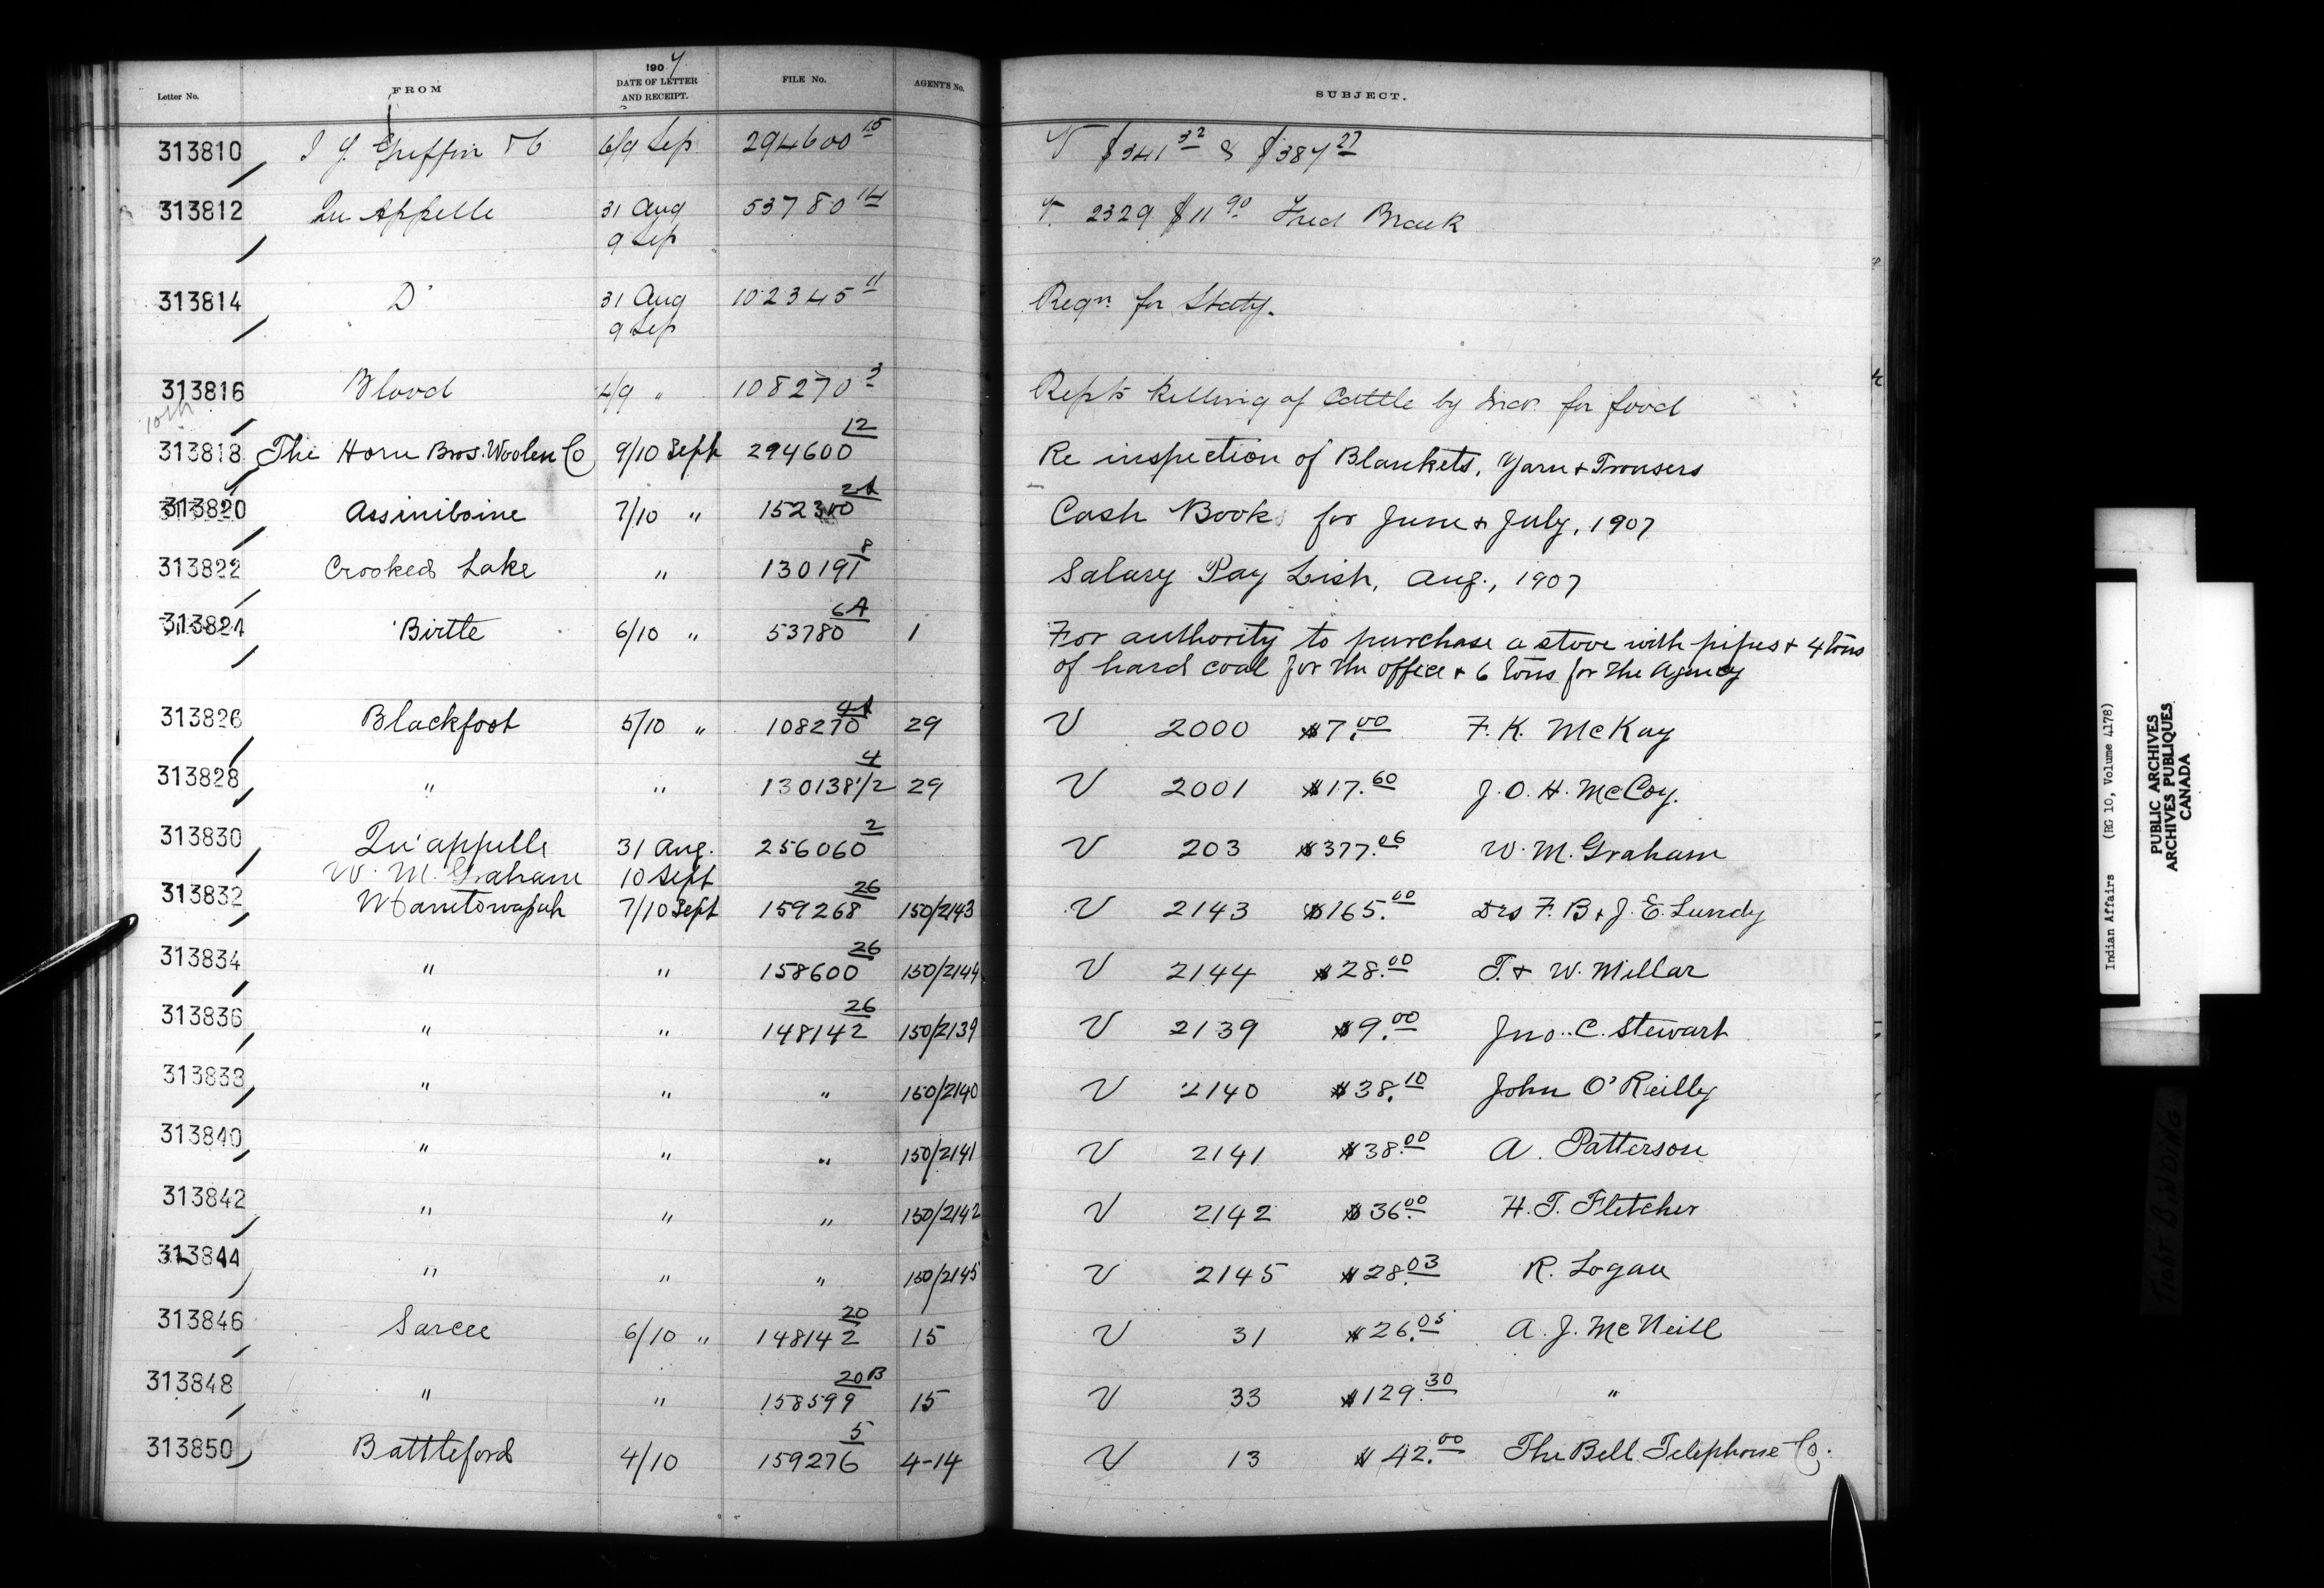 Letter No. FROM 1907 DATE OF LETTER AND RECEIPT. FILE No. AGENT'S No. SUBJECT.
313810 J Y Griffin & Co 6/9 Sep 294600 15 V $341 32 & $387 27
313812 Qu Appelle 31 Aug 53780 14 V 2329 $11 90 Fred Brack
9 Sep
313814 Do 31 Aug 102345 11 Reqn for Staty.
9 Sep
313816 Blood 4/9 " 108270 3 Repts killing of Cattle by Inds. for food
10th
313818 The Horn Bros. Woolen Co 9/10 Sept 294600 12 Re inspection of Blankets, Yarn & Trousers
313820 Assiniboine 7/10 " 152300 2A Cash Books for June & July, 1907
313822 Crooked Lake " 130191 8 Salary Pay List, Aug., 1907
313824 Birtle 6/10 " 53780 6A 1 For authority to purchase a stove with pipes & 4 tons
of hard coal for the office & 6 tons for the Agency
313826 Blackfoot 5/10 " 108270 4A 29 V 2000 $7.00 F. K. McKay
313828 " " 130138 1/2 4 29 V 2001 $17.60 J. O. H. McCoy.
313830 Qu'appelle 31 Aug. 256060 2 V 203 $377.06 W. M. Graham
W. M. Graham 10 Sept
313832 Manitowapah 7/10 Sept 159268 26 150/2143 V 2143 $165.00 Drs F. B & J. E. Lundy
313834 " " 158600 26 150/2144 V 2144 $28.00 T. & W. Millar
313836 " " 148142 26 150/2139 V 2139 $9.00 Jno. C. Stewart
313838 " " " 150/2140 V 2140 $38.10 John O'Reilly
313840 " " " 150/2141 V 2141 $38.00 A. Patterson
313842 " " " 150/2142 V 2142 $36.00 H. T. Fletcher
313844 " " " 150/2145 V 2145 $28.03 R. Logan
313846 Sarcee 6/10 " 148142 20 15 V 31 $26.05 A. J. McNeill
313848 " " 158599 20B 15 V 33 $129.30 "
313850 Battleford 4/10 159276 5 4-14 V 13 $42.00 The Bell Telephone Co.
Indian Affairs (RG 10, Volume 4178)
PUBLIC ARCHIVES
ARCHIVES PUBLIQUES
CANADA
TIGHT BINDING